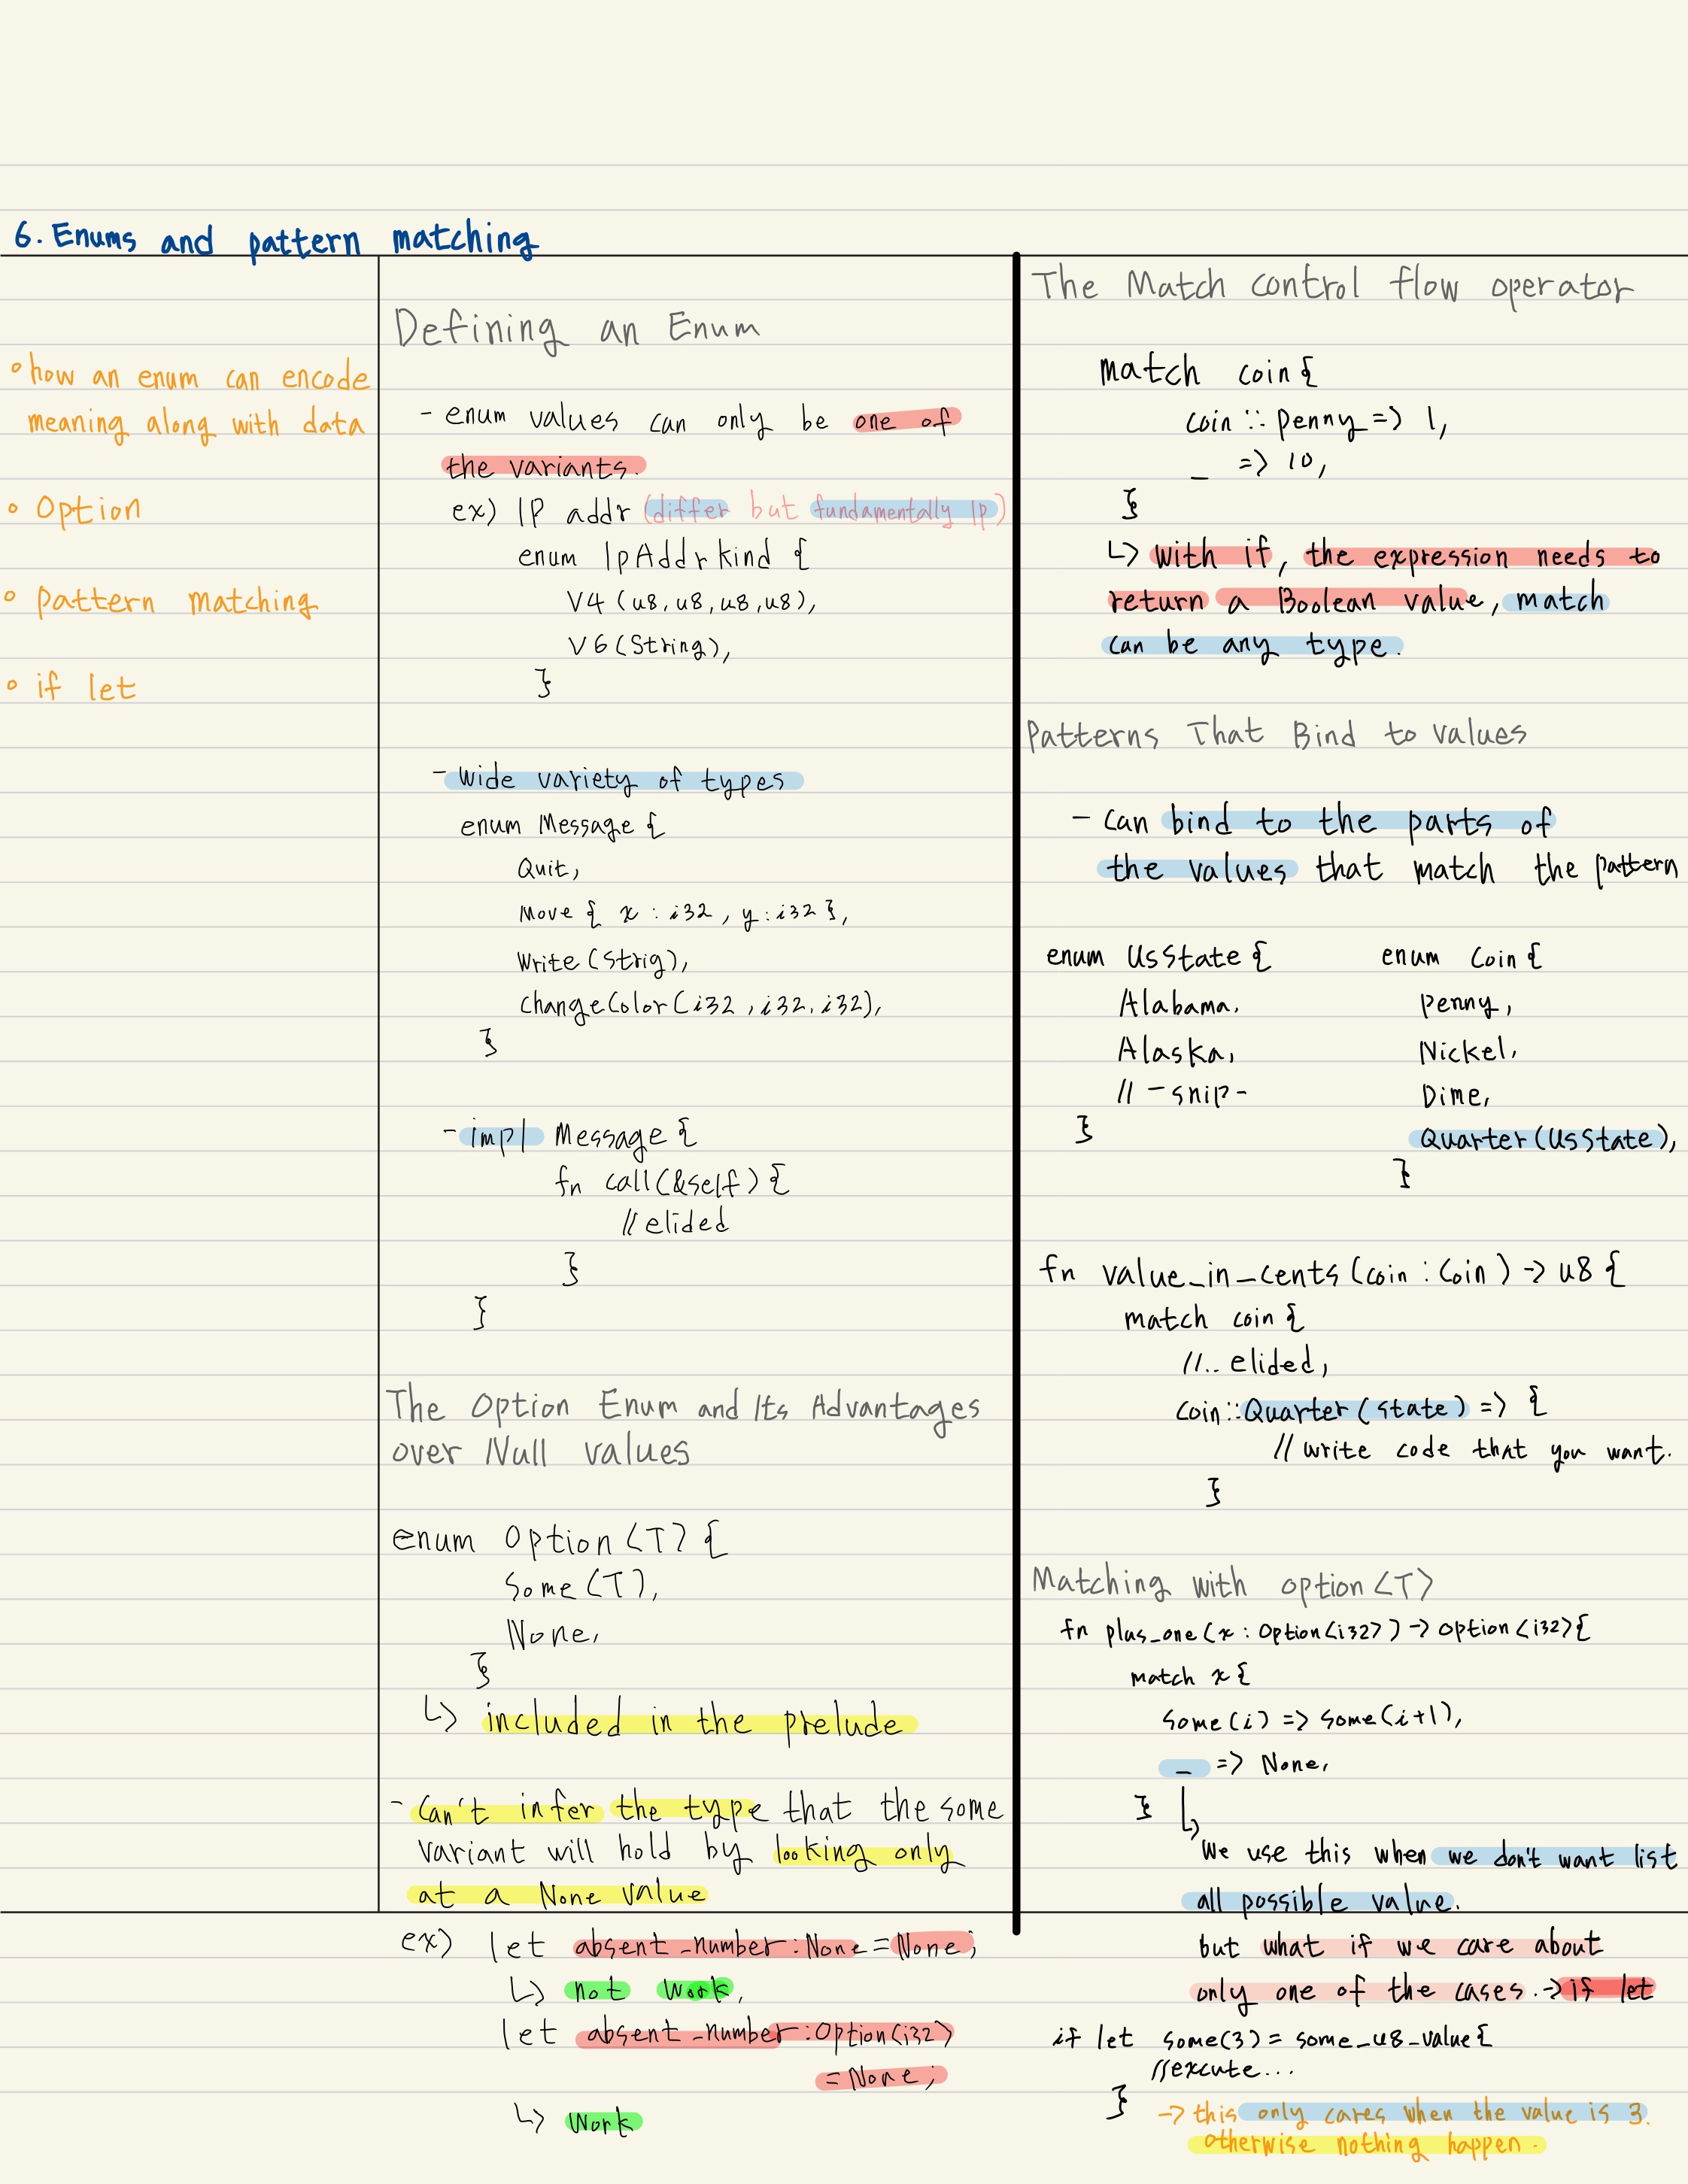 6. Enums and pattern matching
• how an enum can encode
meaning along with data
• Option
• pattern matching
• if let
Defining an Enum
- enum values can only be one of
the variants.
ex) IP addr (differ but fundamentally Ip)
enum IpAddrkind {
V4 (u8, u8, u8, u8),
V6 (String),
}
- wide variety of types
enum Message {
Quit,
Move { x : i32 , y : i32 },
Write (Strig),
changeColor (i32 , i32, i32),
}
- impl Message {
fn call (&self) {
// elided
}
}
The Option Enum and Its Advantages
over Null values
enum Option <T> {
Some (T),
None,
}
↳ included in the prelude
- Can't infer the type that the some
variant will hold by looking only
at a None value
ex) let absent_number : None = None;
↳ not work,
let absent_number : Option<i32>
= None;
↳ work
The Match control flow operator
match coin {
coin :: penny => 1,
_ => 10,
}
↳ with if, the expression needs to
return a Boolean value, match
can be any type.
Patterns That Bind to values
- can bind to the parts of
the values that match the pattern
enum UsState {
Alabama,
Alaska,
// -snip-
}
enum Coin {
penny,
Nickel,
Dime,
Quarter (UsState),
}
fn value_in_cents (coin : Coin) -> u8 {
match coin {
//.. elided,
coin :: Quarter (state) => {
// write code that you want.
}
Matching with option <T>
fn plus_one (x : Option<i32>) -> option <i32> {
match x {
some (i) => some (i+1),
_ => None,
}
↳ We use this when we don't want list
all possible value.
but what if we care about
only one of the cases. -> if let
if let some(3) = some_u8_value {
//excute...
}
-> this only cares when the value is 3.
otherwise nothing happen.